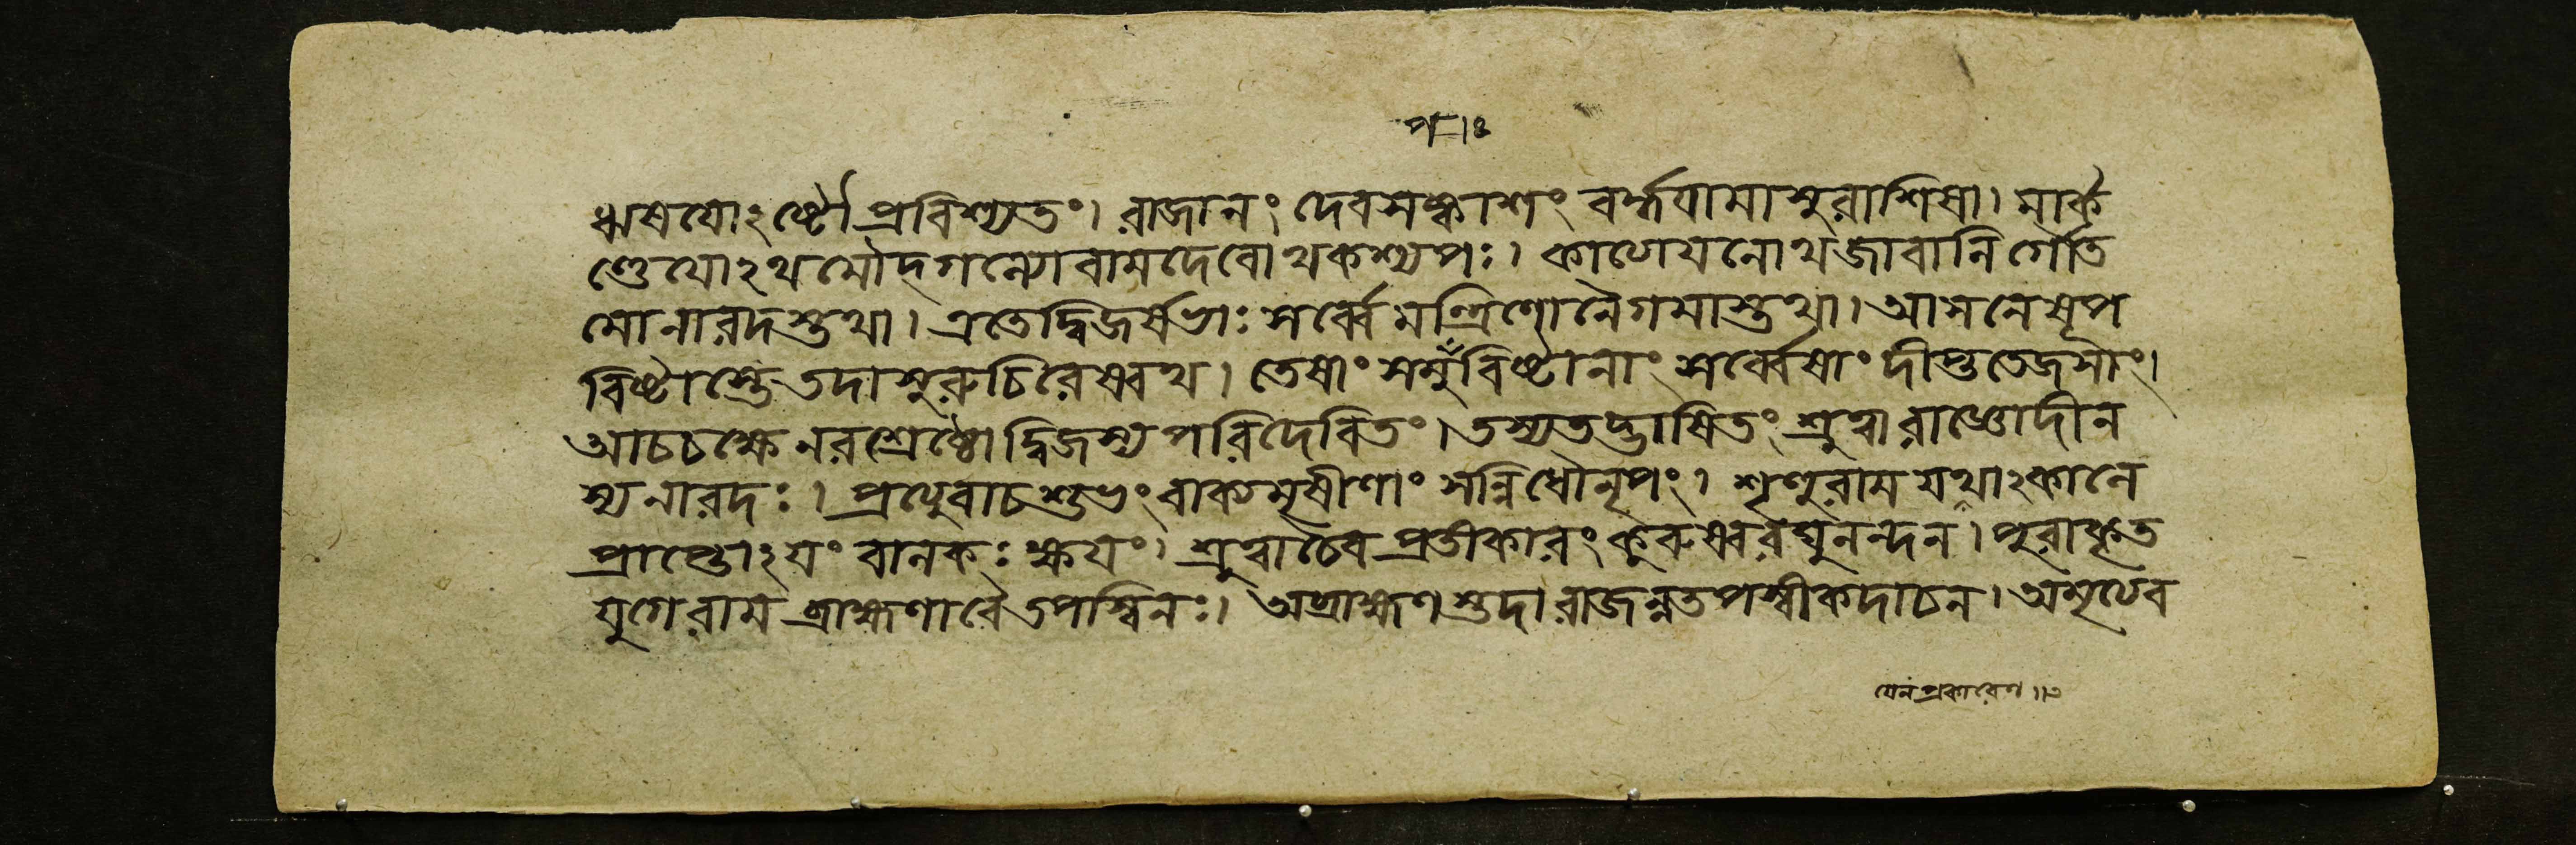 ঋষযোঽষ্টৌপ্রবিশ্যতং। রাজানং দেবসঙ্কাশং বর্দ্ধযামাসুরাশিষা। মার্ক
ণ্ডেযোঽথমৌদ্গল্যোবামদেবোথকশ্যপঃ। কাত্যাযনোথজাবালি র্গৌত
মোনারদস্তথা। এতেদ্বিজর্ষভাঃ সর্ব্বে মন্ত্রিণোনৈগমাস্তথা। আসনেষূপ
বিষ্টাস্তে তদাসুরুচিরেষ্বথ। তেষাং সমুঁবিষ্টানাং সর্ব্বেষাং দীপ্ততেজসাং।
আচচক্ষে নরশ্রেষ্ঠোদ্বিজস্য পরিদেবিতং। তস্যতদ্ভাষিতং শ্রুত্বা রাজ্ঞোদীন
স্য নারদঃ। প্রত্যুবাচ শুভং বাক্যমৃষীণাং সন্নিধৌনৃপং। শৃণুরাম যথাঽকালে
প্রাপ্তোঽযং বালকঃ ক্ষযং। শ্রুত্বাচৈব প্রতীকারং কুরুষ্বরঘুনন্দন। পুরাকৃত
যুগে রাম ব্রাহ্মণাবৈ তপস্বিনঃ। অব্রাহ্মণ স্তদা রাজন্নতপস্বীকদাচন। অমৃত্যব
যেন প্রকারেণ ॥